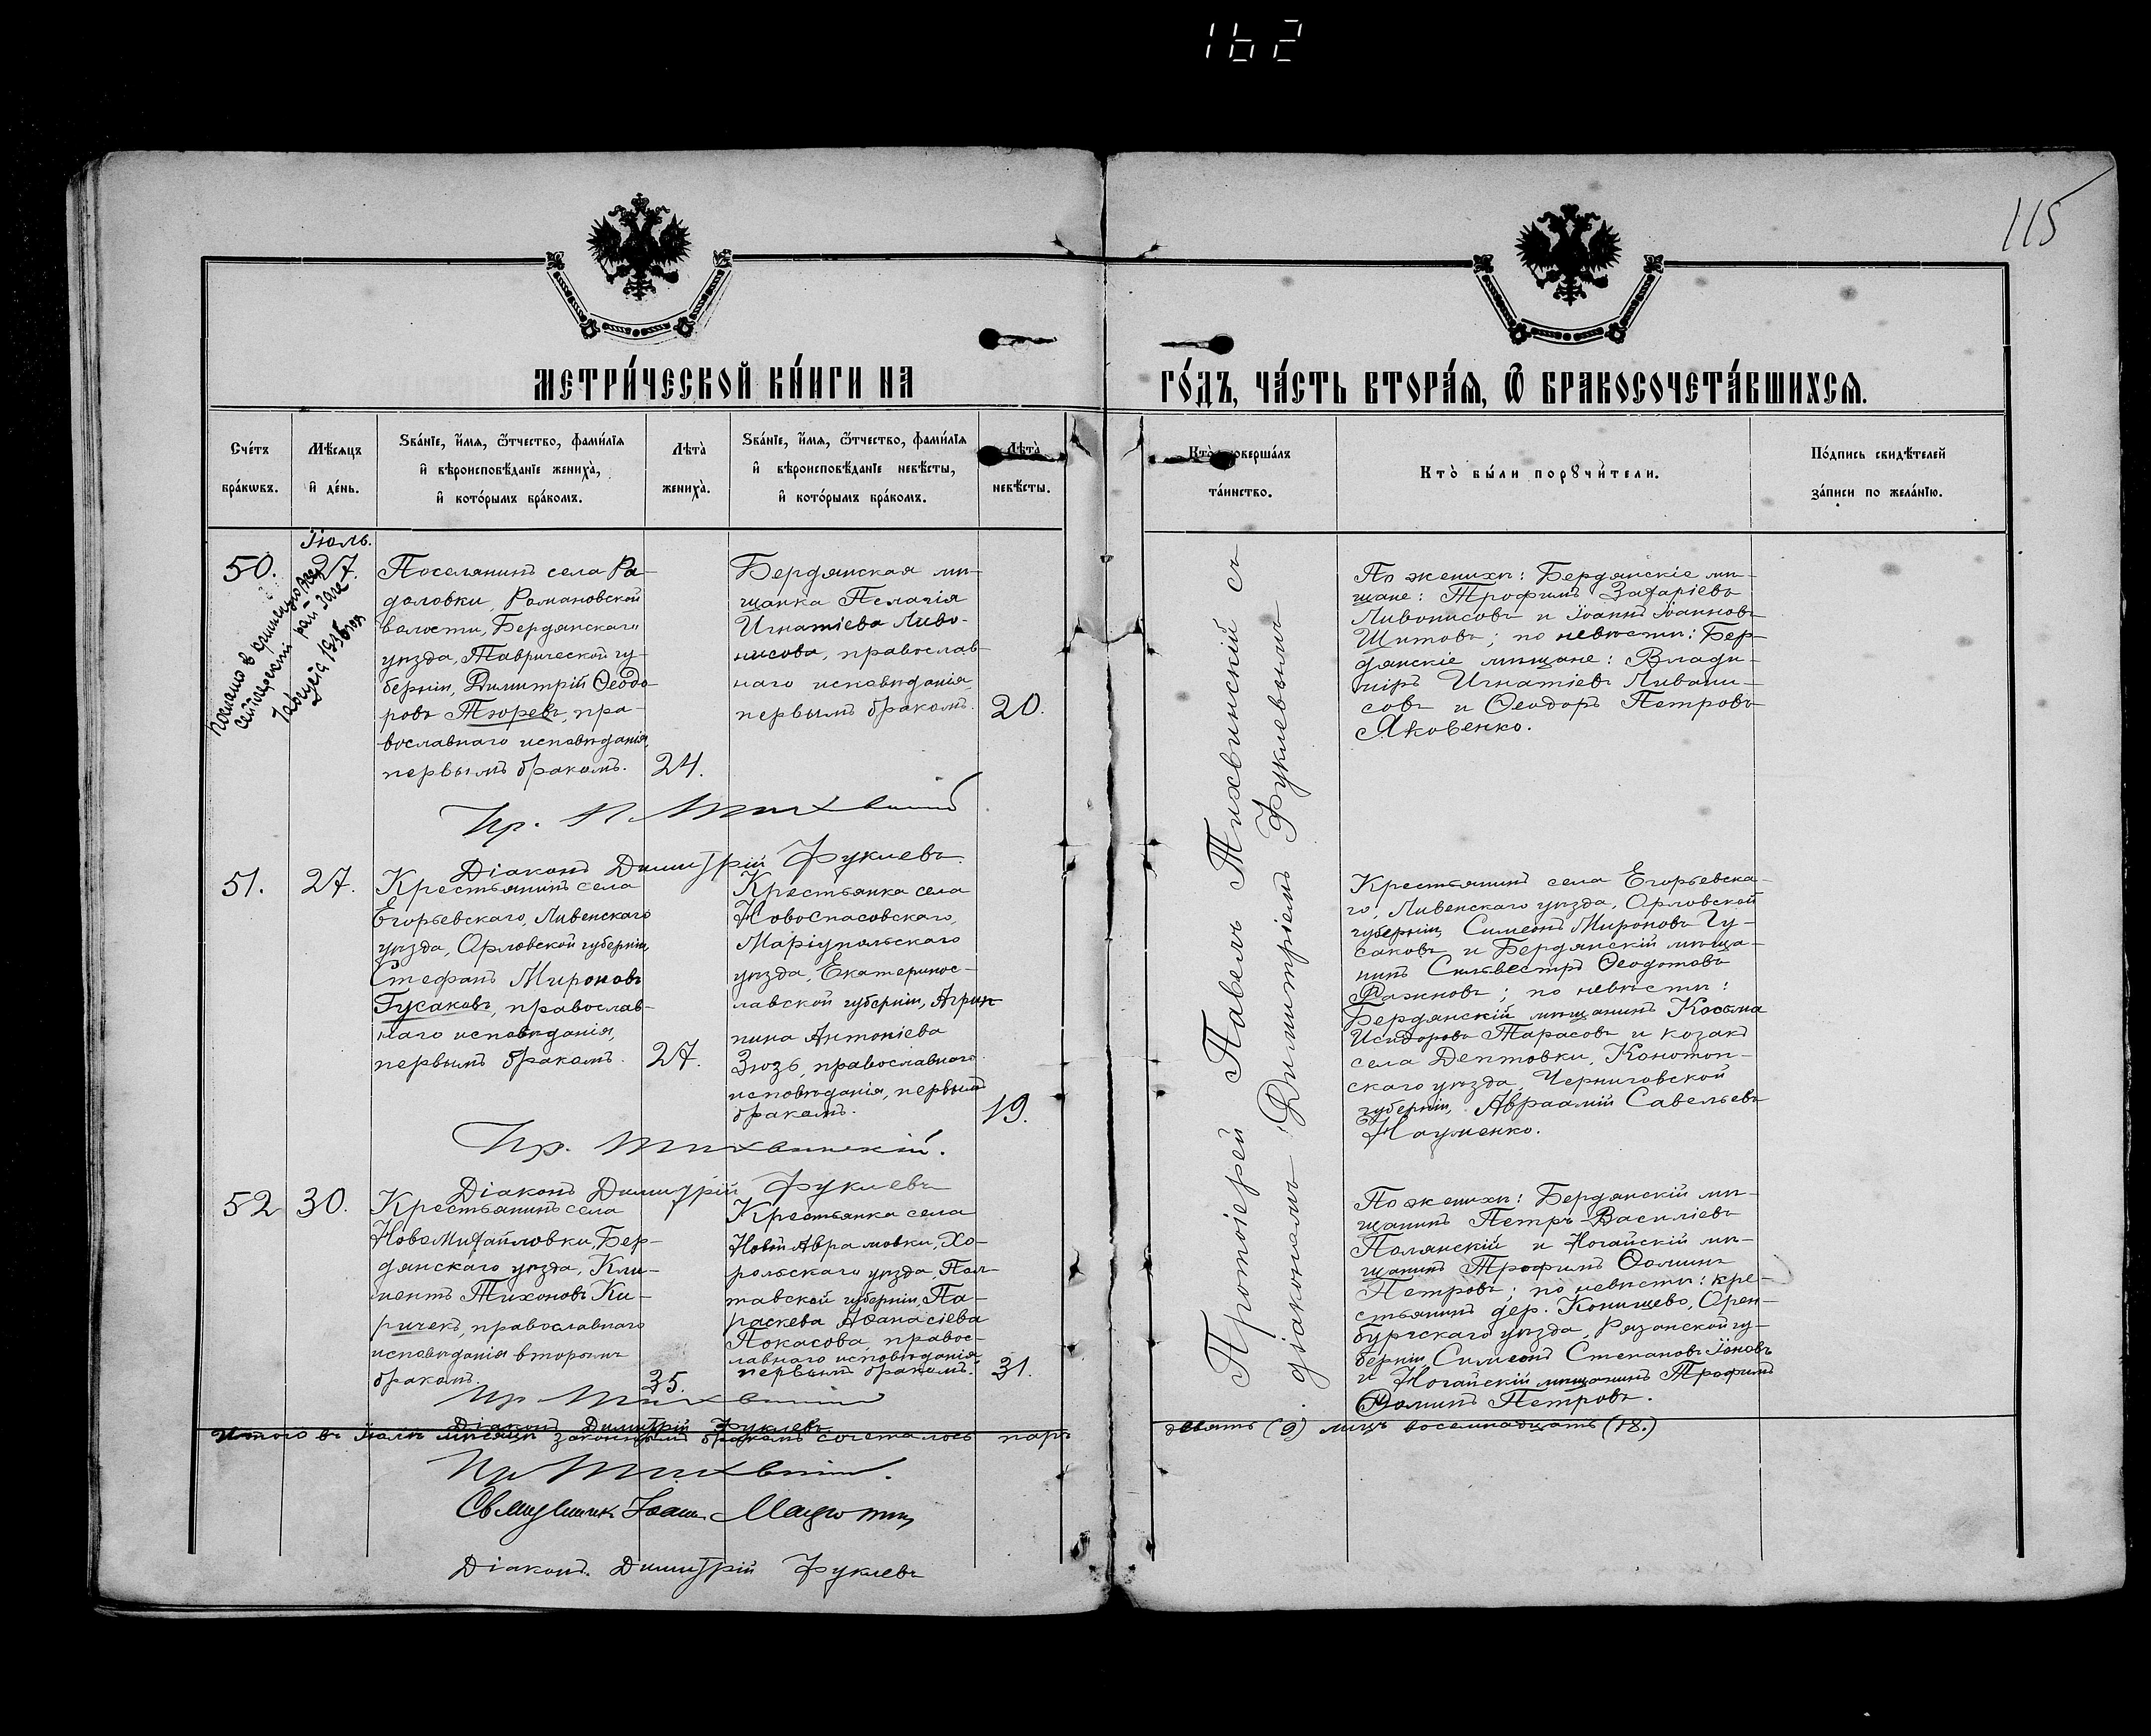 162
115
МЕТРИ́ЧЕСКОЙ КНИ́ГИ НА
ГО́ДЪ, ЧА́СТЬ ВТОРА́Ѧ, Ѽ БРАКОСОЧЕТА́ВШИХСѦ.
Сче́тъ
бра́кѡвъ.
Мѣ́сѧцъ
и҆ де́нь.
Ѕва́нїе, и҆́мѧ, ѻ҆́тчество, фами́лїѧ
и҆ вѣроисповѣ́данїе жениха̀,
и҆ кото́рымъ бра́комъ.
Лѣта̀
жениха̀.
Ѕва́нїе, и҆́мѧ, ѻ҆́тчество, фами́лїѧ
и҆ вѣроисповѣ́данїе невѣ́сты,
и҆ кото́рымъ бра́комъ.
Лѣта̀
невѣ́сты.
Кто̀ соверша́лъ
та́инство.
Кто̀ бы́ли порꙋчи́тели.
По́дпись свидѣ́телей
за́писи по жела́нїю.
Іюль.
50.
27.
Поселянинъ села Ра-
доловки, Романовской
волости, Бердянскаго
уѣзда, Таврической гу-
берніи, Димитрій Ѳеодо-
ровъ Тюревъ, пра-
вославнаго исповѣданія,
первымъ бракомъ.
24.
Бердянская мѣ-
щанка Пелагія
Игнатіева Ливо-
нисова, православ-
наго исповѣданія,
первымъ бракомъ.
20.
По женихѣ: Бердянскіе мѣ-
щане: Трофимъ Захаріевъ
Ливонисовъ и Іоаннъ Іоанновъ
Шитовъ; по невѣстѣ: Бер-
дянскіе мѣщане: Влади-
міръ Игнатіевъ Ливани-
совъ и Ѳеодоръ Петровъ
Яковенко.
Діаконъ Димитрій Фуклевъ
51.
27.
Крестьянинъ села
Егорьевскаго, Ливенскаго
уѣзда, Орловской губерніи,
Стефанъ Мироновъ
Гусаковъ, православ-
наго исповѣданія,
первымъ бракомъ.
27.
Крестьянка села
Новоспасовскаго,
Маріупольскаго
уѣзда, Екатеринос-
лавской губерніи, Агрип-
пина Антоніева
Зюзь, православнаго
исповѣданія, первымъ
бракомъ.
19.
Крестьянинъ села Егорьевска-
го, Ливенскаго уѣзда, Орловской
губерніи, Симеонъ Мироновъ Гу-
саковъ и Бердянскій мѣща-
нинъ Сильвестръ Ѳеодотовъ
по невѣстѣ:
Бердянскій мѣщанинъ Косьма
Исидоровъ Тарасовъ и козакъ
села Дептовки, Конотоп-
скаго уѣзда, Черниговской
губерніи, Авраамій Савельевъ
Науменко.
Пр. Тихвинскій.
Діаконъ Димитрій Фуклевъ
52
30.
Крестьянинъ села
НовоМихайловки, Бер-
дянскаго уѣзда, Кли-
ментъ Тихоновъ Ки-
ричекъ, православнаго
исповѣданія вторымъ
бракомъ.
35.
Крестьянка села
Новой Аврамовки, Хо-
рольскаго уѣзда, Пол-
тавской губерніи, Па-
раскева Аѳанасіева
Покасова, правос-
лавнаго исповѣданія,
первымъ бракомъ.
31.
По женихѣ: Бердянскій мѣ-
щанинъ Петръ Василіевъ
Полянскій и Ногайскій мѣ-
щанинъ Трофимъ Ѳоминъ
Петровъ; по невѣстѣ: кре-
стьянинъ дер. Конищево, Орен-
бургскаго уѣзда, Рязанской гу-
берніи, Симеонъ Степановъ Іоновъ
и Ногайскій мѣщанинъ Трофимъ
Ѳоминъ Петровъ.
Протоіерей Павелъ Тихвинскій съ
діакономъ Димитріемъ Фуклевымъ
Діаконъ Димитрій Фуклевъ
Итого въ Іюлѣ мѣсяцѣ законнымъ бракомъ сочеталось паръ
девять (9) лицъ восемнадцать (18.)
Діаконъ. Димитрій Фуклевъ